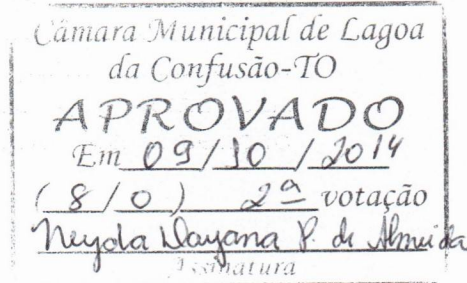 Câmara Municipal de Lagoa
da Confusão-TO
APROVADO
Em 09/10/2014
(8/0) 2ª votação
Neyda Dayana P. de Almeida
Assinatura